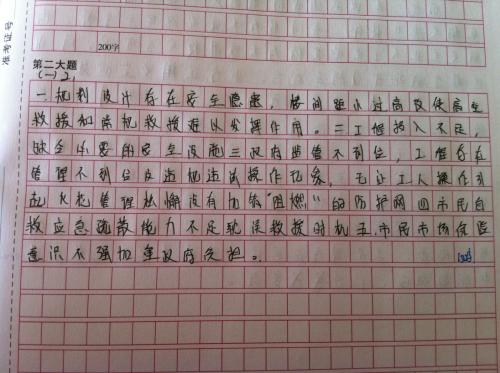 准考证号
200字
第二大题
(一)2、
一.规划设计存在安全隐患,楼间距小过高致使高空
救援和直机救援难以发挥作用。二工程投入不足,
缺乏必要的安全设施三政府监管不到位,工程存在
管理不到位及违规违法操作现象,无证工人操作引
起火花管理松懈没有加装"阻燃"的防护网四市民自
救应急疏散能力不足耽误救援时机五.市民市场保险
意识不强加重政府负担。